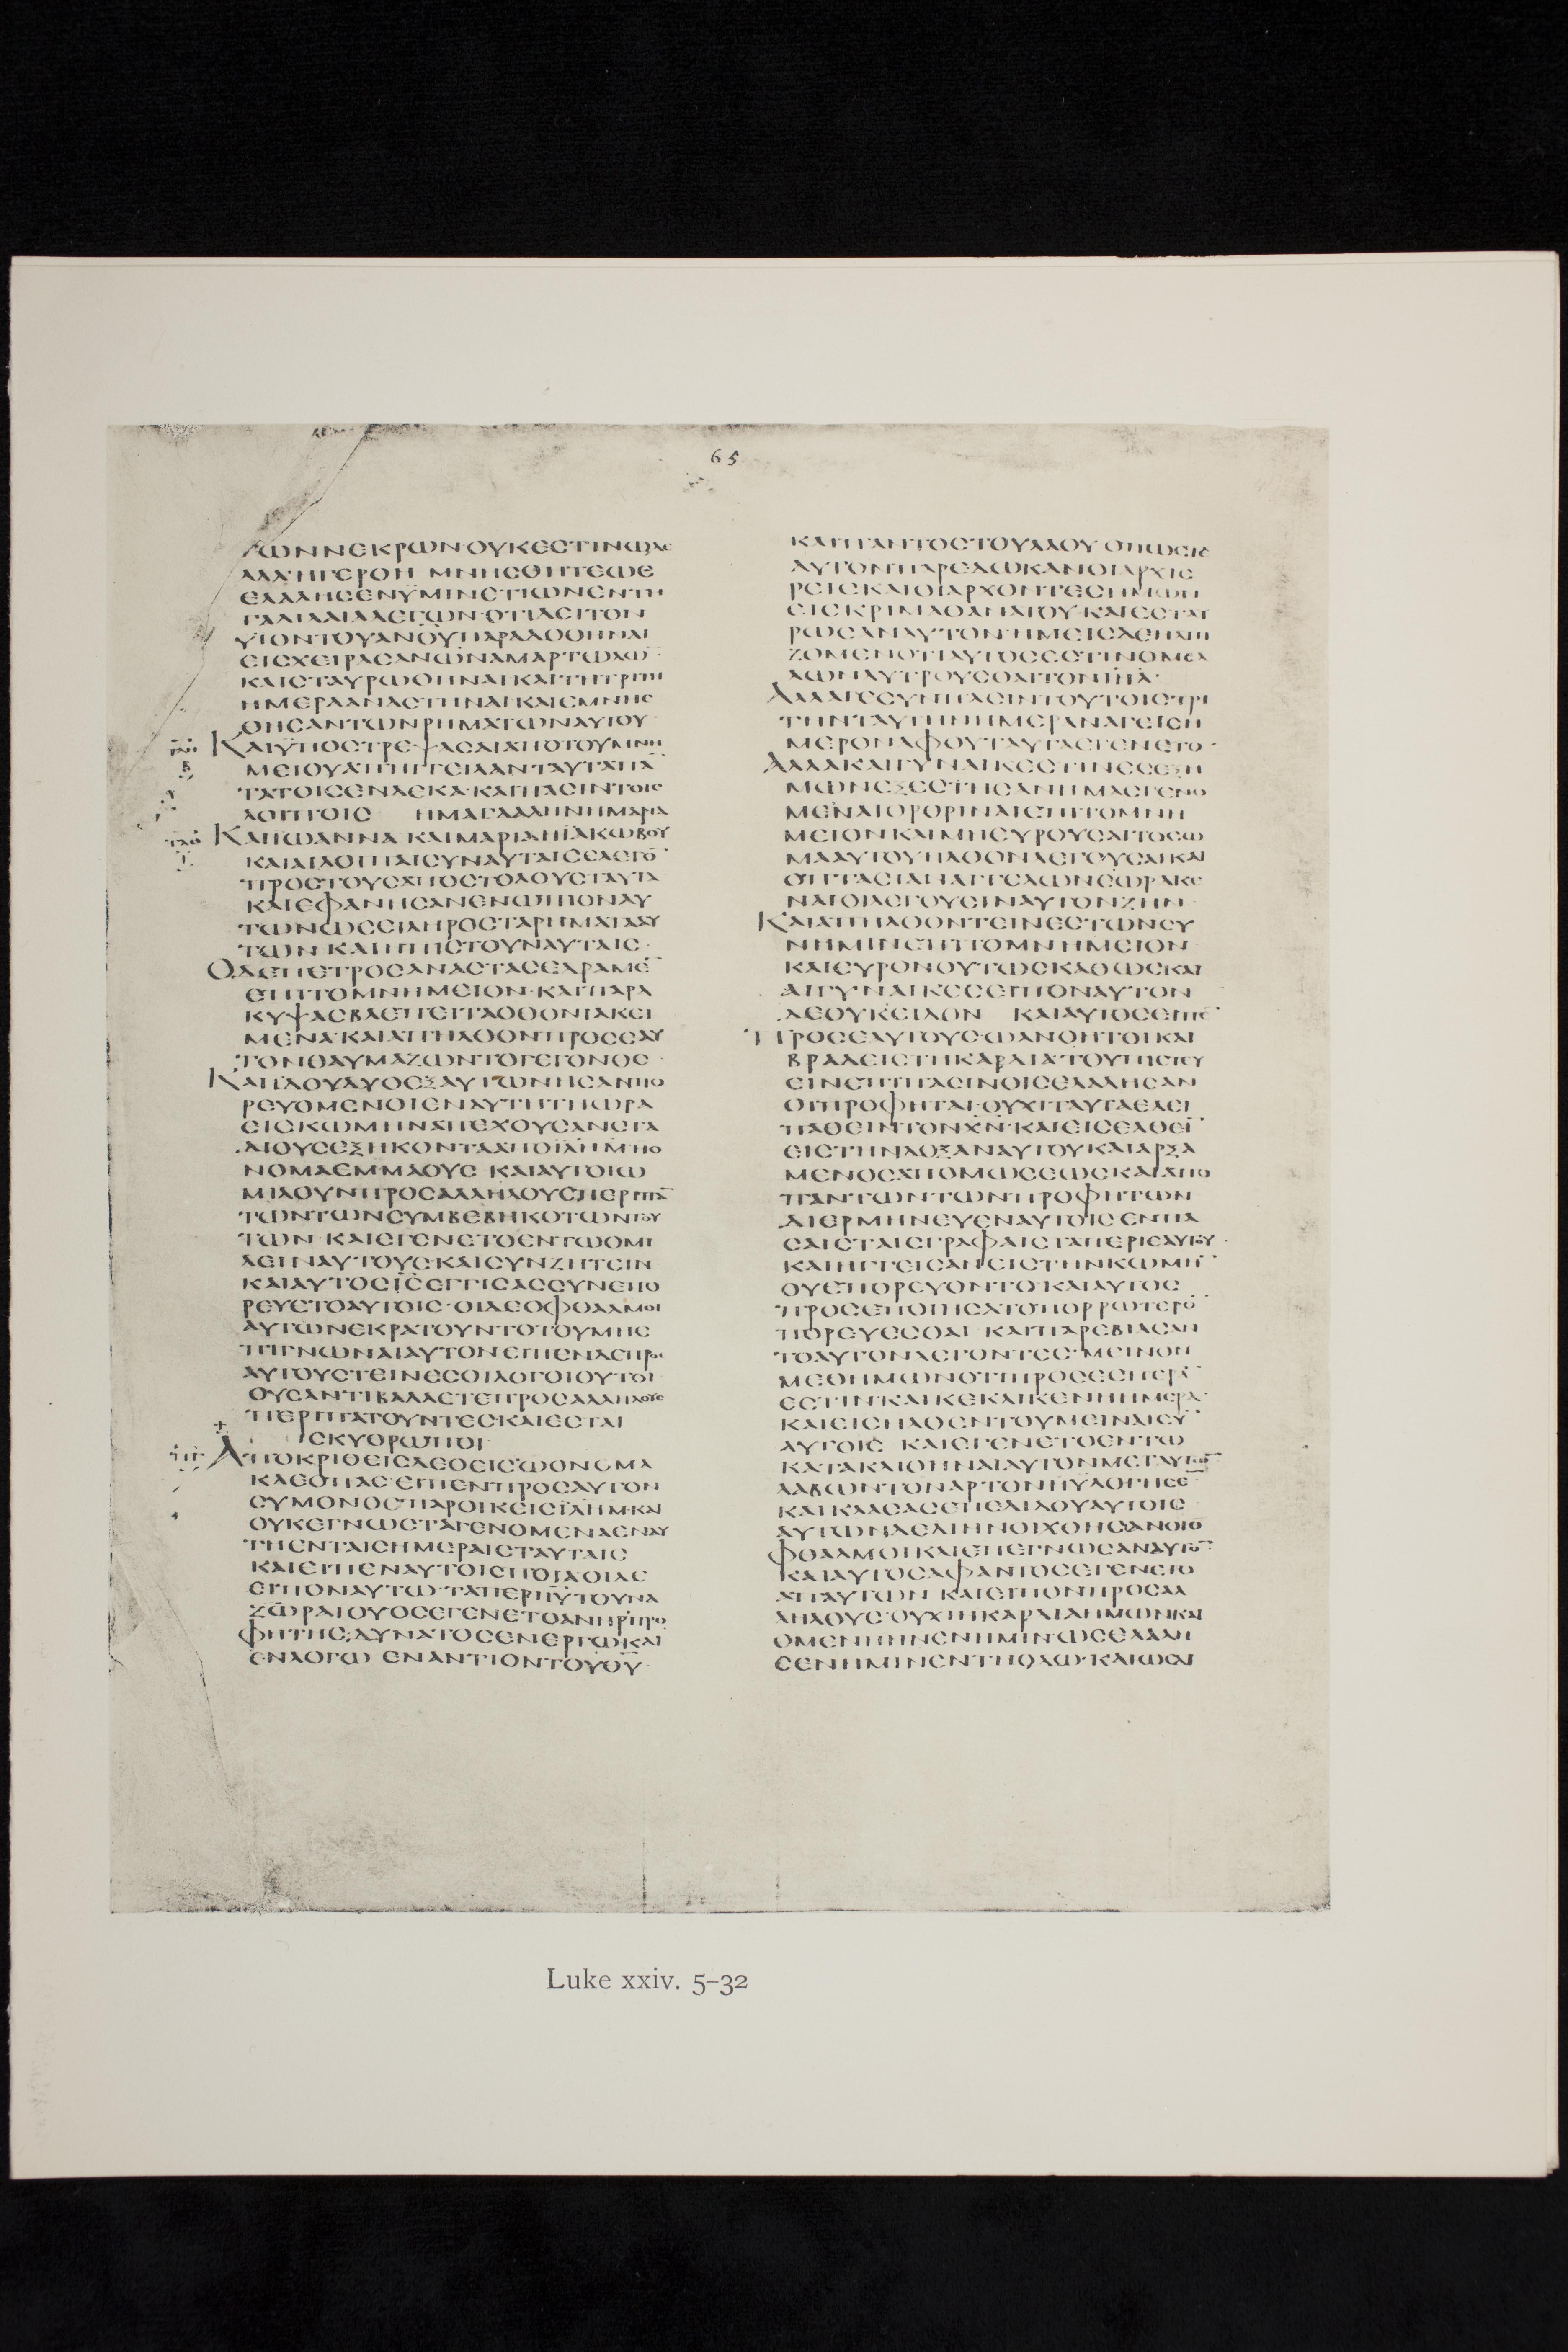 65
ΤΩΝΝΕΚΡΩΝ·ΟΥΚΕCΤΙΝΩΔΕ
ΑΛΛΗΓΕΡΘΗ ΜΝΗCΘΗΤΕΩC
ΕΛΑΛΗCΕΝΫΜΙΝΕΤΙΩΝΕΝΤΗ
ΓΑΛΙΛΑΙΑΛΕΓΩΝ·ΟΤΙΔΕΙΤΟΝ
ΥΙΟΝΤΟΥΑΝΟΥΠΑΡΑΔΟΘΗΝΑΙ
ΕΙCΧΕΙΡΑCΑΝΩΝΑΜΑΡΤΩΛΩ̄
ΚΑΙCΤΑΥΡΩΘΗΝΑΙΚΑΙΤΗΤΡΙΤΗ
ΗΜΕΡΑΑΝΑCΤΗΝΑΙΚΑΙΕΜΝΗC
ΘΗCΑΝΤΩΝΡΗΜΑΤΩΝΑΥΤΟΥ
ΚΑΙΫΠΟCΤΡΕΨΑCΑΙΑΠΟΤΟΥΜΝΗ
ΜΕΙΟΥΑΠΗΓΓΕΙΛΑΝΤΑΥΤΑΠᾹ
ΤΑΤΟΙCΕΝΔΕΚΑ·ΚΑΙΠΑCΙΝΤΟΙC
ΛΟΙΠΟΙC ΗΜΑΓΔΑΛΗΝΗΜΑΡΙΑ
ΚΑΙΪΩΑΝΝΑ ΚΑΙΜΑΡΙΑΗΪΑΚΩΒΟΥ
ΚΑΙΑΙΛΟΙΠΑΙCΥΝΑΥΤΑΙCΕΛΕΓΟ̄
ΠΡΟCΤΟΥCΑΠΟCΤΟΛΟΥCΤΑΥΤΑ
ΚΑΙΕΦΑΝΗCΑΝΕΝΩΠΙΟΝΑΥ
ΤΩΝΩCΕΙΛΗΡΟCΤΑΡΗΜΑΤΑΑΥ
ΤΩΝ ΚΑΙΗΠΙCΤΟΥΝΑΥΤΑΙC
ΟΔΕΠΕΤΡΟCΑΝΑCΤΑCΕΔΡΑΜΕ̄
ΕΠΙΤΟΜΝΗΜΕΙΟΝ·ΚΑΙΠΑΡΑ
ΚΥΨΑCΒΛΕΠΕΙΤΑΟΘΟΝΙΑΚΕΙ
ΜΕΝΑ·ΚΑΙΑΠΗΛΘΟΝΠΡΟCΕΑΥ
ΤΟΝΘΑΥΜΑΖΩΝΤΟΓΕΓΟΝΟC
ΚΑΙΪΔΟΥΔΥΟΕΞΑΥΤΩΝΗCΑΝΠΟ
ΡΕΥΟΜΕΝΟΙΕΝΑΥΤΗΤΗΩΡΑ
ΕΙCΚΩΜΗΝΑΠΕΧΟΥCΑΝCΤΑ
ΔΙΟΥCΕΞΗΚΟΝΤΑΑΠΟΪΛΗΜ·ΗΟ
ΝΟΜΑΕΜΜΑΟΥC ΚΑΙΑΥΤΟΙΩ
ΜΙΛΟΥΝΠΡΟCΑΛΛΗΛΟΥCΠΕΡΙΠᾹ
ΤΩΝΤΩΝCΥΜΒΕΒΗΚΟΤΩΝΤΟΥ
ΤΩΝ·ΚΑΙΕΓΕΝΕΤΟΕΝΤΩΟΜΙ
ΛΕΙΝΑΥΤΟΥC·ΚΑΙCΥΝΖΗΤΕΙΝ
ΚΑΙΑΥΤΟCῙC̄ΕΓΓΙCΑCCΥΝΕΠΟ
ΡΕΥΕΤΟΑΥΤΟΙC·ΟΙΔΕΟΦΘΑΛΜΟΙ
ΑΥΤΩΝΕΚΡΑΤΟΥΝΤΟΤΟΥΜΗΕ
ΠΙΓΝΩΝΑΙΑΥΤΟΝΕΙΠΕΝΔΕΠΡΟC
ΑΥΤΟΥCΤΙΝΕCΟΙΛΟΓΟΙΟΥΤΟΙ
ΟΥCΑΝΤΙΒΑΛΛΕΤΕΠΡΟCΑΛΛΗΛΟΥC
ΠΕΡΙΠΑΤΟΥΝΤΕC·ΚΑΙΕCΤΑΙ
CΚΥΘΡΩΠΟΙ
ΑΠΟΚΡΙΘΕΙCΔΕΟΕΙCΩΟΝΟΜΑ
ΚΛΕΟΠΑC·ΕΙΠΕΝΠΡΟCΑΥΤΟΝ
CΥΜΟΝΟCΠΑΡΟΙΚΕΙCΪΛΗΜ·ΚΑΙ
ΟΥΚΕΓΝΩCΤΑΓΕΝΟΜΕΝΑΕΝΑΥ
ΤΗΕΝΤΑΙCΗΜΕΡΑΙCΤΑΥΤΑΙC
ΚΑΙΕΙΠΕΝΑΥΤΟΙCΠΟΙΑΟΙΔΕ
ΕΙΠΟΝΑΥΤΩ·ΤΑΠΕΡΙῙῩ·ΤΟΥΝΑ
ΖΩΡΑΙΟΥΟCΕΓΕΝΕΤΟΑΝΗΡΠΡΟ
ΦΗΤΗC·ΔΥΝΑΤΟCΕΝΕΡΓΩΚΑΙ
ΕΝΛΟΓΩ ΕΝΑΝΤΙΟΝΤΟΥΘ̄Ῡ
ΚΑΙΠΑΝΤΟCΤΟΥΛΑΟΥ ΟΠΩCΤΕ
ΑΥΤΟΝΠΑΡΕΔΩΚΑΝΟΙΑΡΧΙΕ
ΡΕΙCΚΑΙΟΙΑΡΧΟΝΤΕCΗΜΩΝ
ΕΙCΚΡΙΜΑΘΑΝΑΤΟΥ·ΚΑΙΕCΤΑΥ
ΡΩCΑΝΑΥΤΟΝ·ΗΜΕΙCΔΕΗΛΠΙ
ΖΟΜΕΝΟΤΙΑΥΤΟCΕCΤΙΝΟΜΕΛ
ΛΩΝΛΥΤΡΟΥCΘΑΙΤΟΝῙΗ̄Λ̄·
ΑΛΛΑΓΕCΥΝΠΑCΙΝΤΟΥΤΟΙCΤΡΙ
ΤΗΝΤΑΥΤΗΝΗΜΕΡΑΝΑΓΕΙCΗ
ΜΕΡΟΝΑΦΟΥΤΑΥΤΑΕΓΕΝΕΤΟ·
ΑΛΛΑΚΑΙΓΥΝΑΙΚΕCΤΙΝΕCΕΞΗ
ΜΩΝΕΞΕCΤΗCΑΝΗΜΑCΓΕΝΟ
ΜΕΝΑΙΟΡΘΡΙΝΑΙΕΠΙΤΟΜΝΗ
ΜΕΙΟΝΚΑΙΜΗΕΥΡΟΥCΑΙΤΟCΩ
ΜΑΑΥΤΟΥΗΛΘΟΝΛΕΓΟΥCΑΙΚΑΙ
ΟΠΤΑCΙΑΝΑΓΓΕΛΩΝΕΩΡΑΚΕ
ΝΑΙΟΙΛΕΓΟΥCΙΝΑΥΤΟΝΖΗΝ·
ΚΑΙΑΠΗΛΘΟΝΤΙΝΕCΤΩΝCΥ
ΝΗΜΙΝΕΠΙΤΟΜΝΗΜΕΙΟΝ
ΚΑΙΕΥΡΟΝΟΥΤΩCΚΑΘΩCΚΑΙ
ΑΙΓΥΝΑΙΚΕCΕΙΠΟΝΑΥΤΟΝ
ΔΕΟΥΚΕΙΔΟΝ ΚΑΙΑΥΤΟCΕΙΠΕ̄
ΠΡΟCΑΥΤΟΥCΩΑΝΟΗΤΟΙΚΑΙ
ΒΡΑΔΕΙCΤΗΚΑΡΔΙΑ·ΤΟΥΠΙCΤΕΥ
ΕΙΝΕΠΙΠΑCΙΝΟΙCΕΛΑΛΗCΑΝ
ΟΙΠΡΟΦΗΤΑΙ·ΟΥΧΙΤΑΥΤΑΕΔΕΙ
ΠΑΘΕΙΝΤΟΝΧ̄Ν̄·ΚΑΙΕΙCΕΛΘΕῙ
ΕΙCΤΗΝΔΟΞΑΝΑΥΤΟΥΚΑΙΑΡΞΑ
ΜΕΝΟCΑΠΟΜΩCΕΩCΚΑΙΑΠΟ
ΠΑΝΤΩΝΤΩΝΠΡΟΦΗΤΩΝ
ΔΙΕΡΜΗΝΕΥΕΝΑΥΤΟΙCΕΝΠΑ
CΑΙCΤΑΙCΓΡΑΦΑΙCΤΑΠΕΡΙΕΑΥΤΟΥ·
ΚΑΙΗΓΓΕΙCΑΝΕΙCΤΗΝΚΩΜΗ̄
ΟΥΕΠΟΡΕΥΟΝΤΟ·ΚΑΙΑΥΤΟC
ΠΡΟCΕΠΟΙΗCΑΤΟΠΟΡΡΩΤΕΡΩ
ΠΟΡΕΥΕCΘΑΙ ΚΑΙΠΑΡΕΒΙΑCΑΝ
ΤΟΑΥΤΟΝΛΕΓΟΝΤΕC·ΜΕΙΝΟΝ
ΜΕΘΗΜΩΝΟΤΙΠΡΟCΕCΠΕΡᾹ
ΕCΤΙΝ·ΚΑΙΚΕΚΛΙΚΕΝΗΗΜΕΡΑ·
ΚΑΙΕΙCΗΛΘΕΝΤΟΥΜΕΙΝΑΙCῩ
ΑΥΤΟΙC ΚΑΙΕΓΕΝΕΤΟΕΝΤΩ
ΚΑΤΑΚΛΙΘΗΝΑΙΑΥΤΟΝΜΕΤΑΥΤΩ̄
ΛΑΒΩΝΤΟΝΑΡΤΟΝΗΥΛΟΓΗCΕ̄
ΚΑΙΚΛΑCΑCΕΠΕΔΙΔΟΥΑΥΤΟΙC
ΑΥΤΩΝΔΕΔΙΗΝΟΙΧΘΗCΑΝΟΙΟ
ΦΘΑΛΜΟΙΚΑΙΕΠΕΓΝΩCΑΝΑΥΤΟ̄
ΚΑΙΑΥΤΟCΑΦΑΝΤΟCΕΓΕΝΕΤΟ
ΑΠΑΥΤΩΝ ΚΑΙΕΙΠΟΝΠΡΟCΑΛ
ΛΗΛΟΥC·ΟΥΧΙΗΚΑΡΔΙΑΗΜΩΝΚΑΙ
ΟΜΕΝΗΗΝΕΝΗΜΙΝ·ΩCΕΛΑΛΗ
CΕΝΗΜΙΝΕΝΤΗΟΔΩ·ΚΑΙΩCΔΙ
Luke xxiv. 5–32